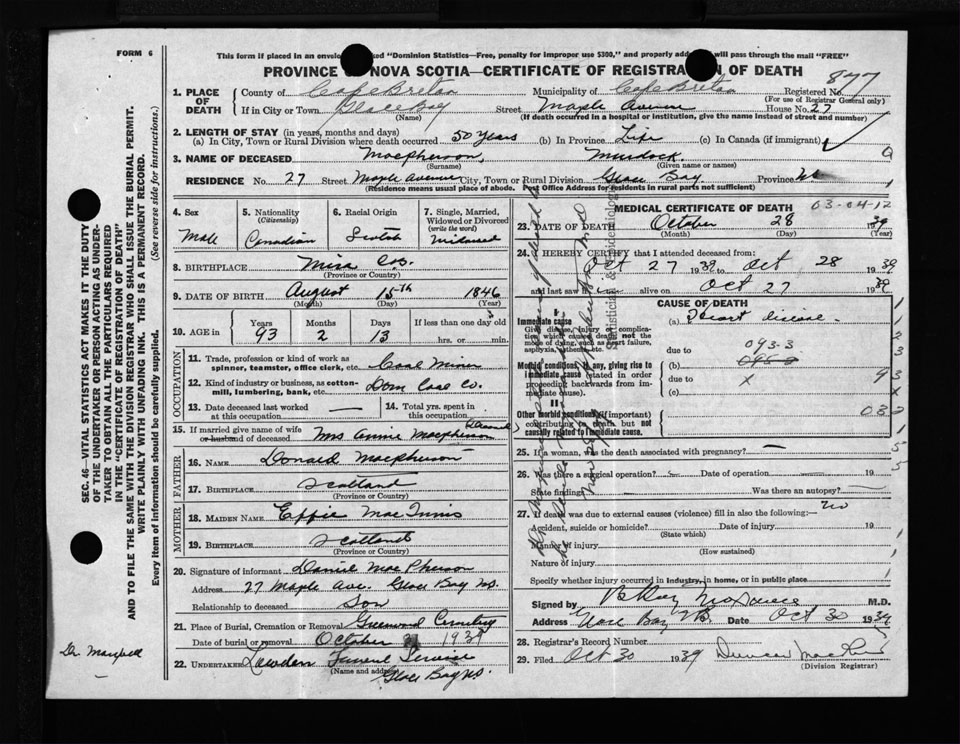 FORM 6
This form if placed in an envelope marked "Dominion Statistics—Free, penalty for improper use $300," and properly addressed will pass through the mail "FREE"
PROVINCE OF NOVA SCOTIA—CERTIFICATE OF REGISTRATION OF DEATH
877
1. PLACE OF DEATH
County of Cape Breton Municipality of Cape Breton Registered No.
(For use of Registrar General only)
If in City or Town Glace Bay Street Maple Avenue House No. 27
(Name) (If death occurred in a hospital or institution, give the name instead of street and number)
2. LENGTH OF STAY (in years, months and days)
(a) In City, Town or Rural Division where death occurred 50 years (b) In Province Life (c) In Canada (if immigrant)
3. NAME OF DECEASED Macpherson, Murdock
(Surname) (Given name or names)
RESIDENCE No. 27 Street Maple Avenue City, Town or Rural Division Glace Bay Province NS
(Residence means usual place of abode. Post Office Address for residents in rural parts not sufficient)
4. Sex
Male
5. Nationality
(Citizenship)
Canadian
6. Racial Origin
Scotch
7. Single, Married,
Widowed or Divorced
(write the word)
Widowed
8. BIRTHPLACE Mira C.B.
(Province or Country)
9. DATE OF BIRTH August 15th 1846
(Month) (Day) (Year)
10. AGE in
Years Months Days If less than one day old
93 2 13 hrs. or min.
OCCUPATION
11. Trade, profession or kind of work as
spinner, teamster, office clerk, etc. Coal Miner
12. Kind of industry or business, as cotton-
mill, lumbering, bank, etc. Dom Coal Co.
13. Date deceased last worked
at this occupation —
14. Total yrs. spent in
this occupation
15. If married give name of wife
or husband of deceased Mrs Annie Macpherson
FATHER
16. Name Donald Macpherson
17. Birthplace Scotland
(Province or Country)
MOTHER
18. Maiden Name Effie MacInnis
19. Birthplace Scotland
(Province or Country)
20. Signature of informant Daniel MacPherson
Address 27 Maple Ave. Glace Bay NS.
Relationship to deceased Son
21. Place of Burial, Cremation or Removal Greenwood Cemetery
Date of burial or removal October 1939
22. Undertaker Lowden Funeral Service
(Name and address) Glace Bay NS.
MEDICAL CERTIFICATE OF DEATH
03-04-12
23. DATE OF DEATH October 28 1939
(Month) (Day) (Year)
24. I HEREBY CERTIFY that I attended deceased from:
Oct 27 1939 to Oct 28 1939
and last saw h alive on Oct 27 1939
CAUSE OF DEATH
I
Immediate cause
Give disease, injury or complica-
tion which caused death, not the
mode of dying, such as heart failure,
asphyxia, asthenia, etc.
(a) Heart disease
093-3
due to
(b)
Morbid conditions, if any, giving rise to
immediate cause (stated in order
proceeding backwards from im-
mediate cause).
due to X
(c)
II
Other morbid conditions (if important)
contributing to death but not
causally related to immediate cause.
25. If a woman, was the death associated with pregnancy? —
26. Was there a surgical operation? Date of operation 19
State findings Was there an autopsy?
27. If death was due to external causes (violence) fill in also the following:— no
Accident, suicide or homicide? Date of injury 19
(State which)
Manner of injury
(How sustained)
Nature of injury
Specify whether injury occurred in industry, in home, or in public place
Signed by M.D.
Address Glace Bay NS. Date Oct 30 1939
28. Registrar's Record Number
29. Filed Oct 30 1939 Duncan
(Division Registrar)
SEC. 46—VITAL STATISTICS ACT MAKES IT THE DUTY
OF THE UNDERTAKER OR PERSON ACTING AS UNDER-
TAKER TO OBTAIN ALL THE PARTICULARS REQUIRED
IN THE "CERTIFICATE OF REGISTRATION OF DEATH"
AND TO FILE THE SAME WITH THE DIVISION REGISTRAR WHO SHALL ISSUE THE BURIAL PERMIT.
WRITE PLAINLY WITH UNFADING INK. THIS IS A PERMANENT RECORD.
Every item of information should be carefully supplied. (See reverse side for instructions.)
Statistician & Epidemiologist
Dr. Maxwell